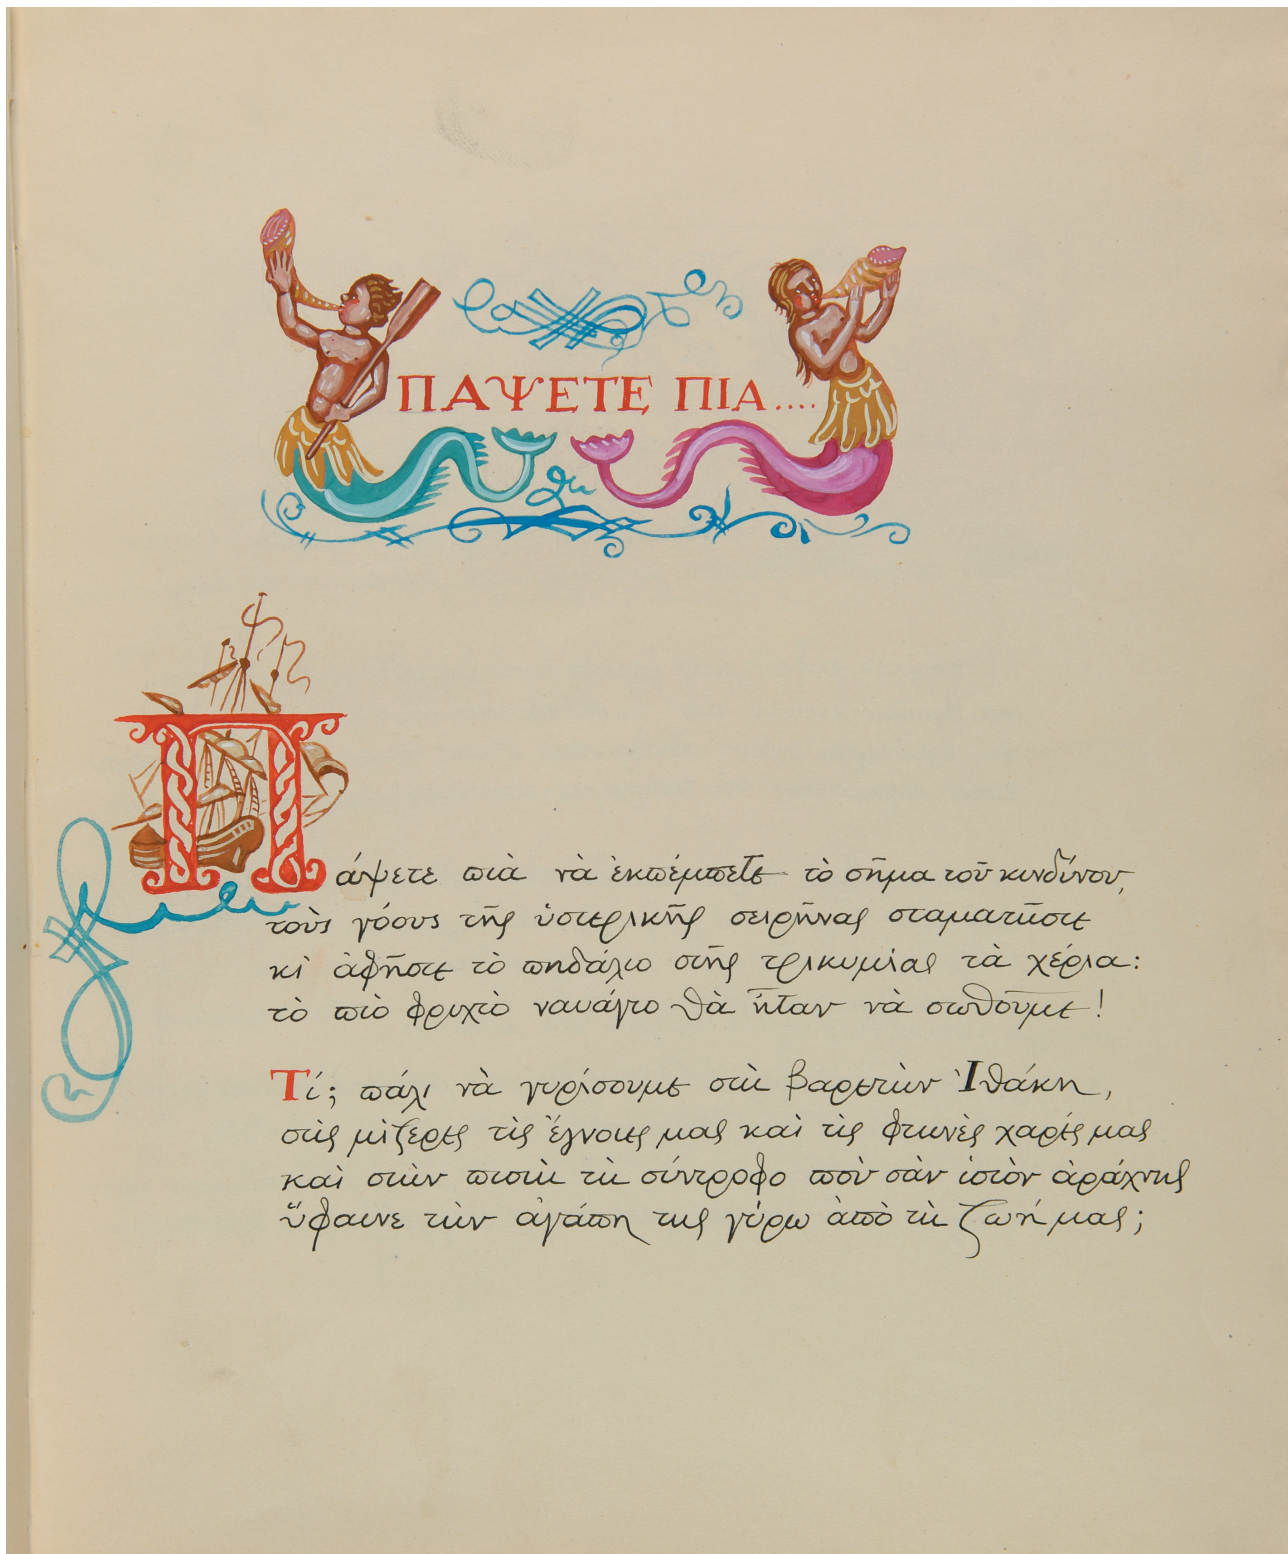 ΠΑΨΕΤΕ ΠΙΑ....
Πάψετε πιὰ νὰ ἐκπέμπετε τὸ σῆμα τοῦ κινδύνου,
τοὺς γόους τῆς ὑστερικῆς σειρῆνας σταματῆστε
κι ἀφῆστε τὸ πηδάλιο στῆς τρικυμίας τὰ χέρια:
τὸ πιὸ φριχτὸ ναυάγιο θὰ ἦταν νὰ σωθοῦμε!
Τί; πάλι νὰ γυρίσουμε στὴ βαρετὴν Ἰθάκη,
στὶς μίζερες τὶς ἔγνοιες μας καὶ τὶς φτηνὲς χαρές μας
καὶ στὴν πιστὴ τὴ σύντροφο ποὺ σὰν ἱστὸν ἀράχνης
ὕφαινε τὴν ἀγάπη της γύρω ἀπὸ τὴ ζωή μας;